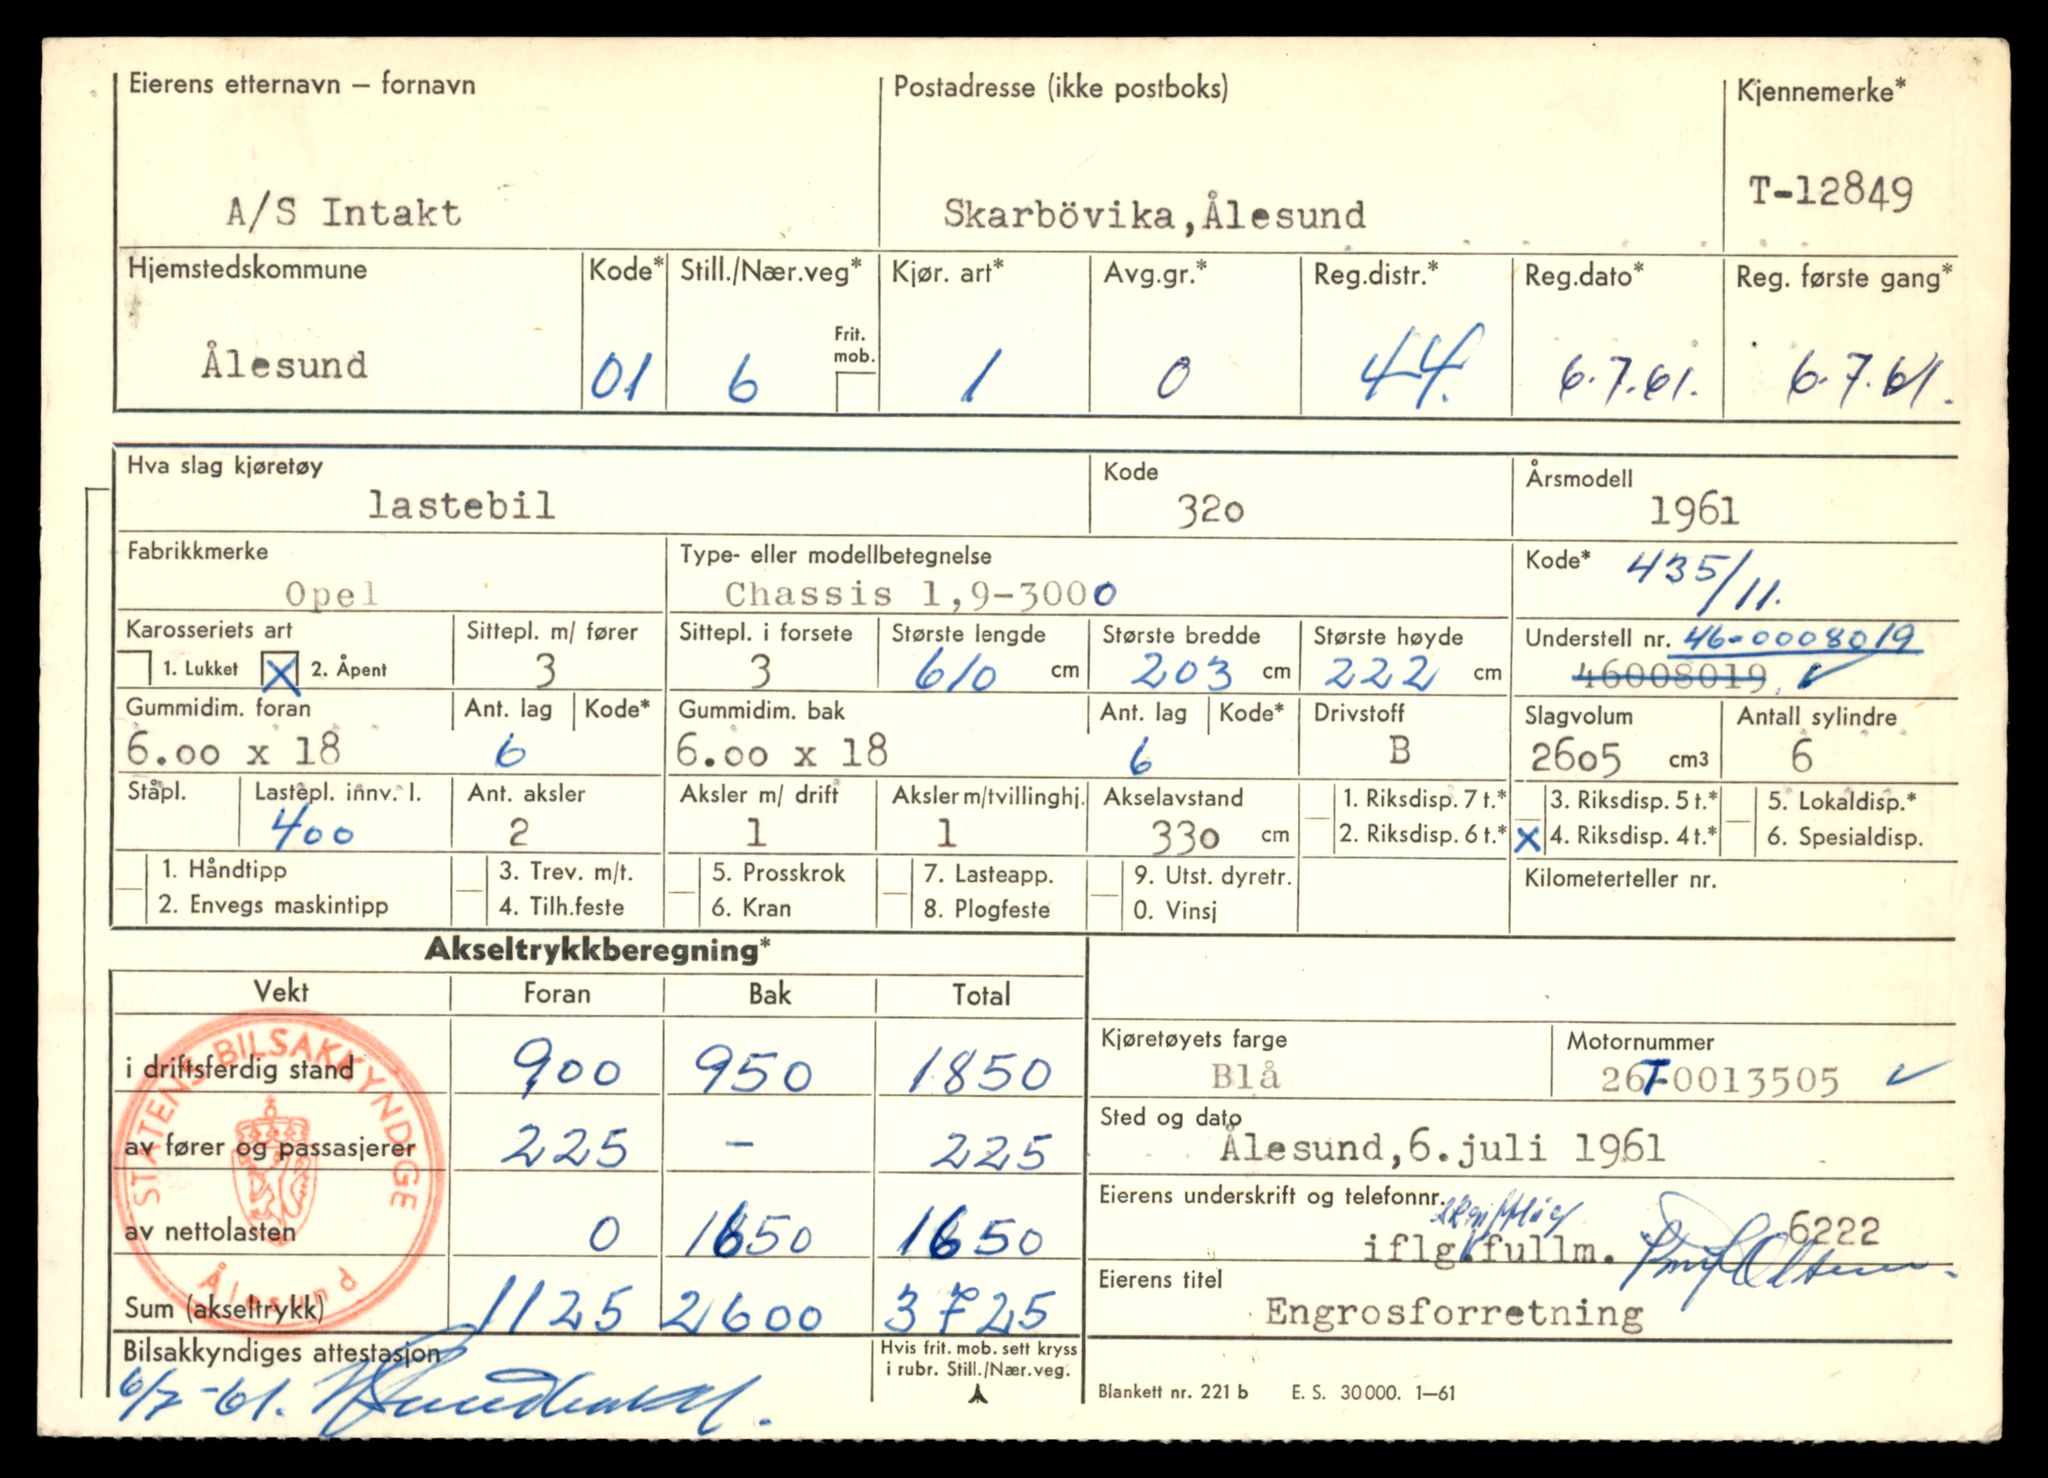 Eierens etternavn – fornavn Postadresse (ikke postboks) Kjennemerke*
A/S Intakt Skarbövika,Ålesund T-12849
Hjemstedskommune Kode* Still./Nær.veg* Kjør. art* Avg.gr.* Reg.distr.* Reg.dato* Reg. første gang*
Frit. mob.
Ålesund 01 6 1 0 44. 6.7.61. 6.7.61.
Hva slag kjøretøy Kode Årsmodell
lastebil 320 1961
Fabrikkmerke Type- eller modellbetegnelse Kode* 435/11.
Opel Chassis 1,9-3000
Karosseriets art Sittepl. m/ fører Sittepl. i forsete Største lengde Største bredde Største høyde Understell nr. 46-0008019
1. Lukket X 2. Åpent 3 3 610 cm 203 cm 222 cm 46008019.
Gummidim. foran Ant. lag Kode* Gummidim. bak Ant. lag Kode* Drivstoff Slagvolum Antall sylindre
6.00 x 18 6 6.00 x 18 6 B 2605 cm3 6
Ståpl. Lastepl. innv. l. Ant. aksler Aksler m/ drift Aksler m/tvillinghj. Akselavstand 1. Riksdisp. 7 t.* 3. Riksdisp. 5 t.* 5. Lokaldisp.*
400 2 1 1 330 cm 2. Riksdisp. 6 t.* X 4. Riksdisp. 4 t.* 6. Spesialdisp.
1. Håndtipp 3. Trev. m/t. 5. Prosskrok 7. Lasteapp. 9. Utst. dyretr. Kilometerteller nr.
2. Envegs maskintipp 4. Tilh.feste 6. Kran 8. Plogfeste 0. Vinsj
Akseltrykkberegning*
Vekt Foran Bak Total
i driftsferdig stand 900 950 1850
av fører og passasjerer 225 - 225
av nettolasten 0 1650 1650
Sum (akseltrykk) 1125 2600 3725
STATENS BILSAKKYNDIGE
Ålesund
Bilsakkyndiges attestasjon
6/7-61.
Hvis frit. mob. sett kryss
i rubr. Still./Nær.veg.
Kjøretøyets farge Motornummer
Blå 26T-0013505
Sted og dato
Ålesund,6.juli 1961
Eierens underskrift og telefonnr.
skriftlig
6222
iflg.fullm.
Eierens titel
Engrosforretning
Blankett nr. 221 b E. S. 30000. 1–61